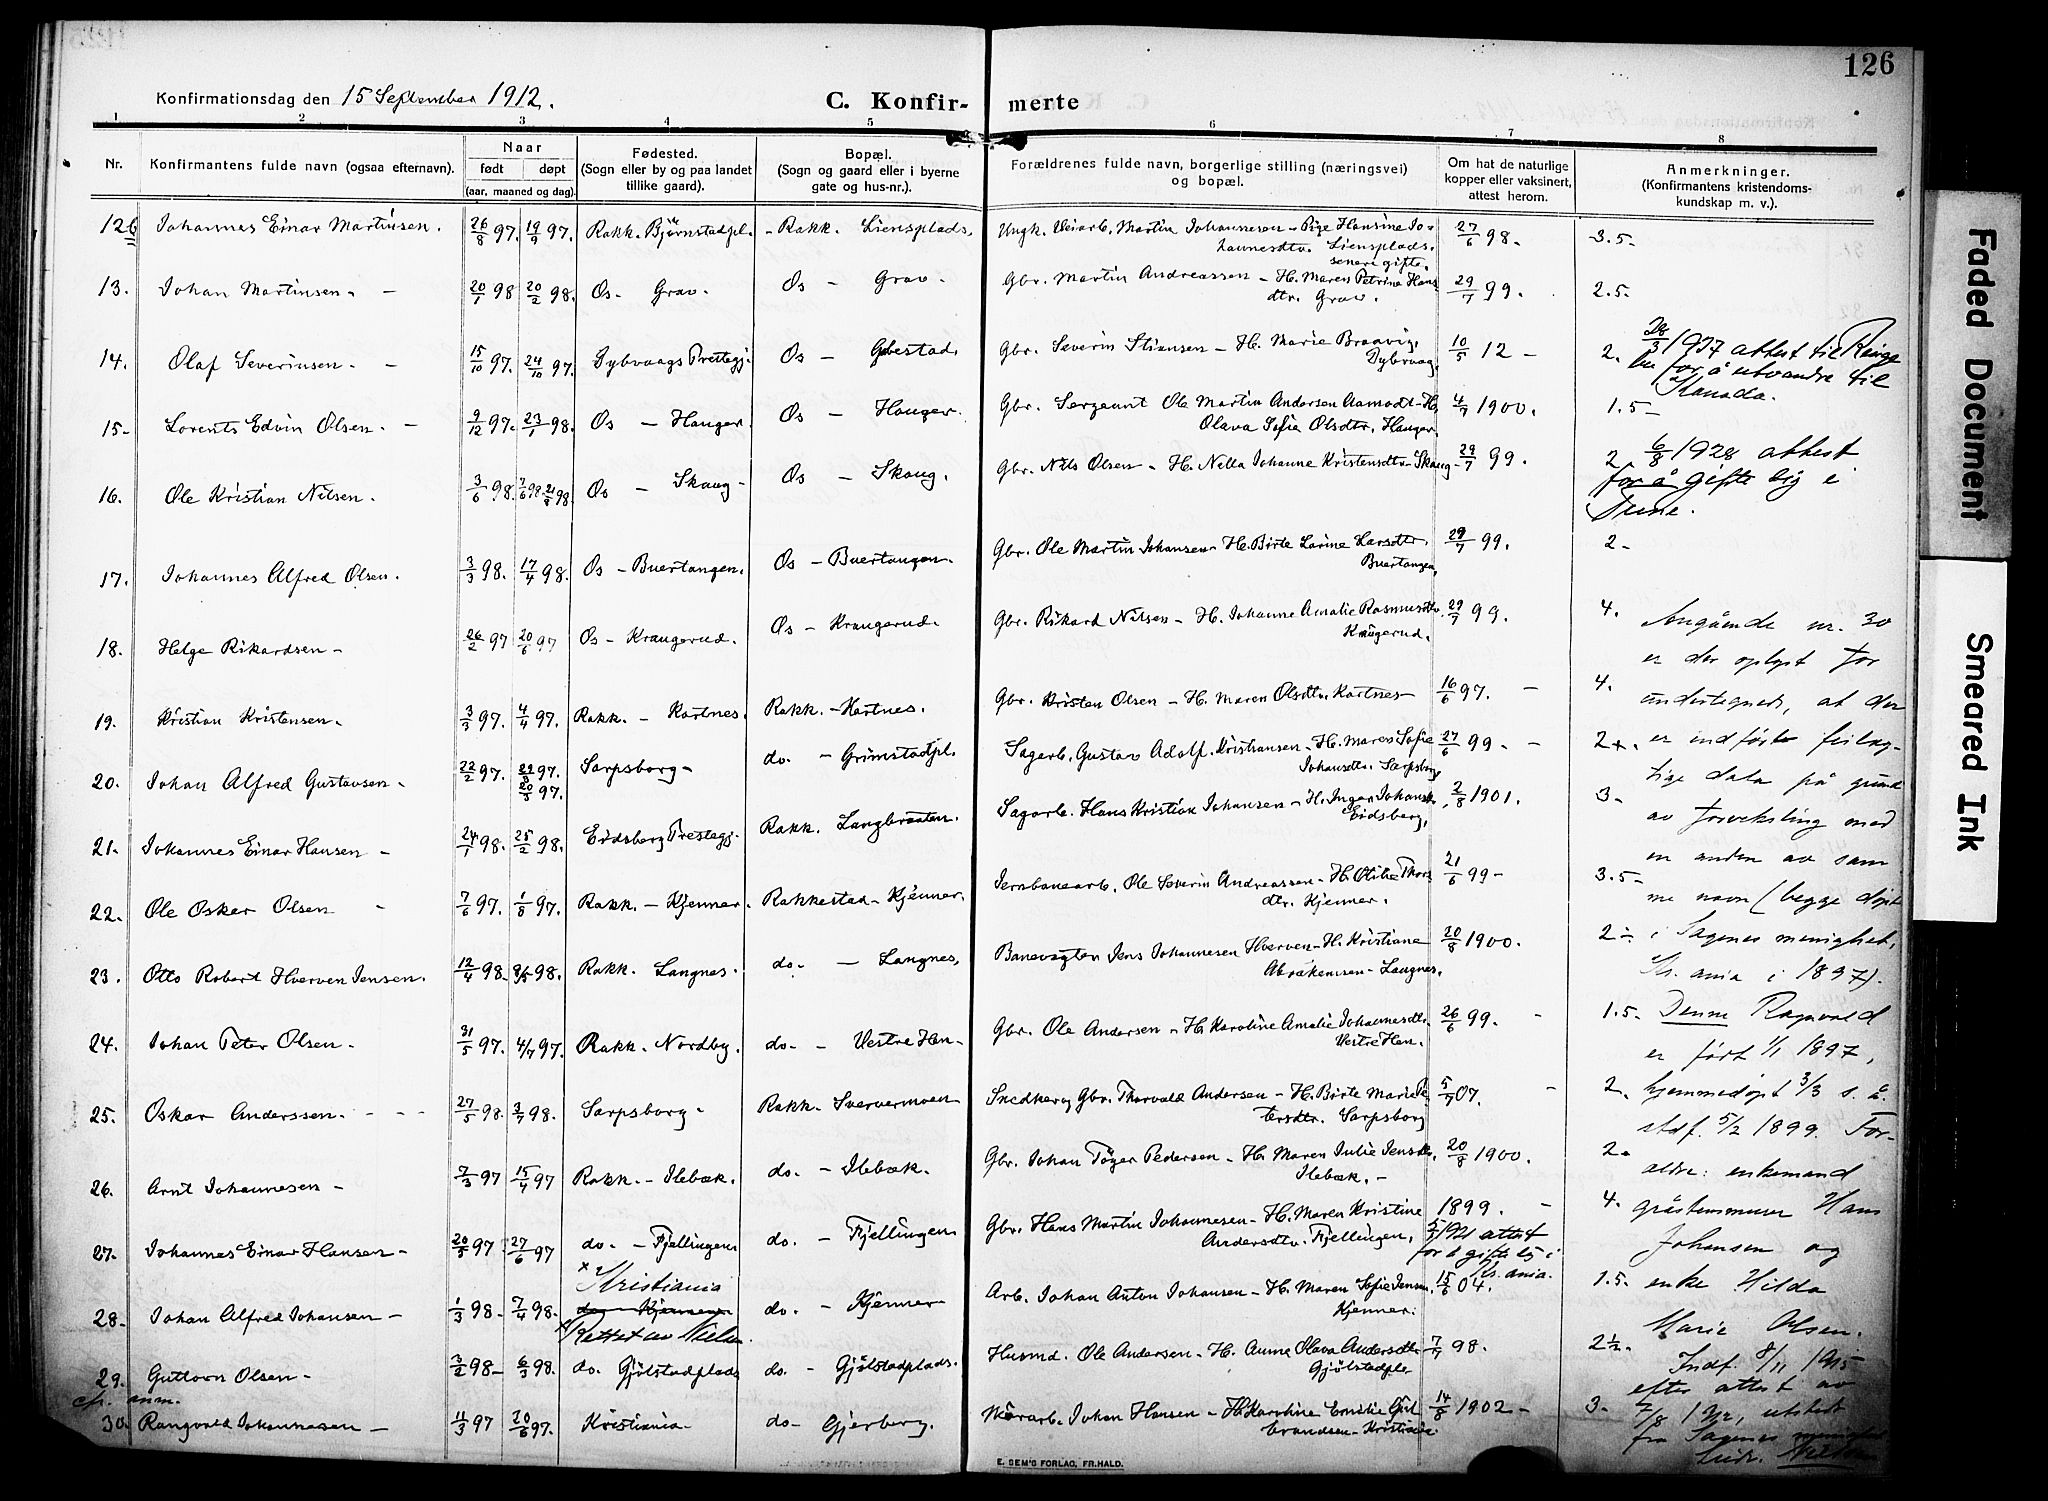 126
Konfirmationsdag den 15 September 1912.
C. Konfir- merte
1 2 3 4 5 6 7 8
Nr. Konfirmantens fulde navn (ogsaa efternavn). Naar født døpt (aar, maaned og dag). Fødested. (Sogn eller by og paa landet tillike gaard). Bopæl. (Sogn og gaard eller i byerne gate og hus-nr.). Forældrenes fulde navn, borgerlige stilling (næringsvei) og bopæl. Om hat de naturlige kopper eller vaksinert, attest herom. Anmerkninger. (Konfirmantens kristendoms-kundskap m. v.).
12 Johannes Einar Martinsen. 26/8 97. 19/9 97. Rakk. Bjørnstadpl. Rakk. Liensplads. Ungk. Veiarb. Martin Johannesen - Pige Hansine Jo-
hannesdtr. Liensplads. senere gifte. 27/6 98. 3.5-
13. Johan Martinsen. 20/1 98 20/2 98. Os - Grav. Os - Grav. Gbr. Martin Andreassen - H. Maren Petrine Hans
dtr. Grav. 29/7 99. 2.5-
14. Olaf Severinsen. 15/10 97. 24/10 97. Dybvaags Prestegj. Os - Gbestad. Gbr. Severin Stiansen - H. Marie Braavig,
Dybvaag. 10/5 12 - 2. 28/3 1927 attest til Ringe
bu for å utvandre til
Kanada.
15- Lorents Edvin Olsen. 9/12 97. 23/1 98. Os - Hauger. Os - Hauger. Gbr. Sergeant Ole Martin Andersen Aamodt - H.
Olava Sofie Olsdtr. Hauger. 4/7 1900. 1.5-
16. Ole Kristian Nilsen. 3/6 98. 7/6 98. 21/8 98 Os - Skaug - Os - Skaug. Gbr. Nils Olsen - H. Nella Johanne Kristensdtr. Skaug - 29/7 99. 2 6/8 1928 attest
for å gifte sig i
Tune.
17. Johannes Alfred Olsen. 3/3 98. 17/4 98. Os - Buertangen. Os - Buertangen. Gbr. Ole Martin Johansen - H. Birte Lorine Larsdtr.
Buertangen. 29/7 99. 2-
18. Helge Rikardsen - 26/2 97 20/6 97 Os - Kraugerud. Os - Kraugerud. Gbr. Rikard Nilsen - H. Johanne Amalie Rasmusdtr.
Kraugerud. 29/7 99. 4.
19. Kristian Kristensen. 3/3 97. 4/4 97. Rakk. - Kartnes. Rakk. - Kartnes. Gbr. Kristen Olsen - H. Maren Olsdtr. Kartnes - 16/6 97. - 4.
20. Johan Alfred Gustavsen. 22/2 97. 22/8 97. 20/5 97. Sarpsborg - do. - Grimstadpl. Sagarb. Gustav Adolf Kristiansen - H. Maren Sofie
Johansdtr. Sarpsborg 27/6 99. - 2+.
21. Johannes Einar Hansen - 24/1 98. 25/2 98. Eidsberg Prestegj. Rakk. Langbraaten. Sagarb. Hans Kristian Johansen - H. Inger Johansdtr.
Eidsberg. 2/8 1901. 3-
22. Ole Osker Olsen - 7/6 97. 1/8 97. Rakk. - Kjenner. Rakkestad - Kjenner. Jernbanearb. Ole Severin Andreassen - H. Otilie Thors
dtr. Kjenner. 21/6 99 - 3.5-
23. Otto Robert Hverven Jensen. 12/4 98. 8/5 98. Rakk. Langnes. do. - Langnes. Banevogten Jens Johannesen Hverven - H. Kristiane
Abrahamsen - Langnes. 20/8 1900. 2÷
24. Johan Peter Olsen - 31/5 97. 4/7 97. Rakk. Nordby. do. - Vestre Hen - Gbr. Ole Andersen - H. Karoline Amalie Johannesdtr.
Vestre Hen. 26/6 99. - 1.5-
25. Oskar Anderssen. - - - 27/5 98. 3/7 98. Sarpsborg - Rakk. Sververmoen Snedker og Gbr. Thorvald Andersen - H. Birte Marie Pe
tersdtr. Sarpsborg 5/7 07. - 2.
26. Arnt Johannesen - 7/3 97 15/4 97 Rakk. - Ilebæk. do. - Ilebæk. Gbr. Johan Tøger Pedersen - H. Maren Julie Jensdtr.
Ilebæk. - 20/8 1900. 2-
27. Johannes Einar Hansen - 20/5 97 27/6 97 do. - Fjellingen do. - Fjellingen Gbr. Hans Martin Johannesen - H. Maren Kristine
Andersdtr. Fjellingen. 1899. - 4.
5/7 1921 attest
for å gifte sig i
Kr.ania.
28. Johan Alfred Johansen - 1/3 98 - 7/4 98. × Kristiania
do - Kjenner
× Rettet av do. - Kjenner Arb. Johan Anton Johansen - H. Maren Sofie Jensen
Kjenner. 15/6 04. 1.5-
29. Guttorm Olsen - 3/2 98 - 6/3 98. do. Gjølstadplads do. - Gjølstadplads. Husmd. Ole Andersen - H. Anne Olava Andersdtr.
Gjølstadpls 7/7 98. 2½.
cfr. anm.
30. Rangvald Johannesen - 11/3 97 20/6 97. Kristiania - do - Gjerberg. Murarb. Johan Hansen - H. Karoline Emilie Gul
brandsen - Kristiania. 14/8 1902 - 3.
Angående nr. 30
er der oplyst for
undertegnede, at der
er indført feilag-
tige data på grund
av forveksling med
en anden av sam
me navn (begge døpt
i Sagenes menighet,
Kr.ania i 1897).
Denne Ragnvald
er født 1/1 1897,
hjemmedøpt 3/3 s. å.
stdf. 5/2 1899. For-
ældre: enkemand
gråstensmurer Hans
Johansen og
enke Hilda
Marie Olsen.
Indf. 8/11 1915
efter attest av
7/8 1912, utstedt
fra Sagenes menighet
E. SEM'S FORLAG, FR.HALD.
Faded Document
Smeared Ink